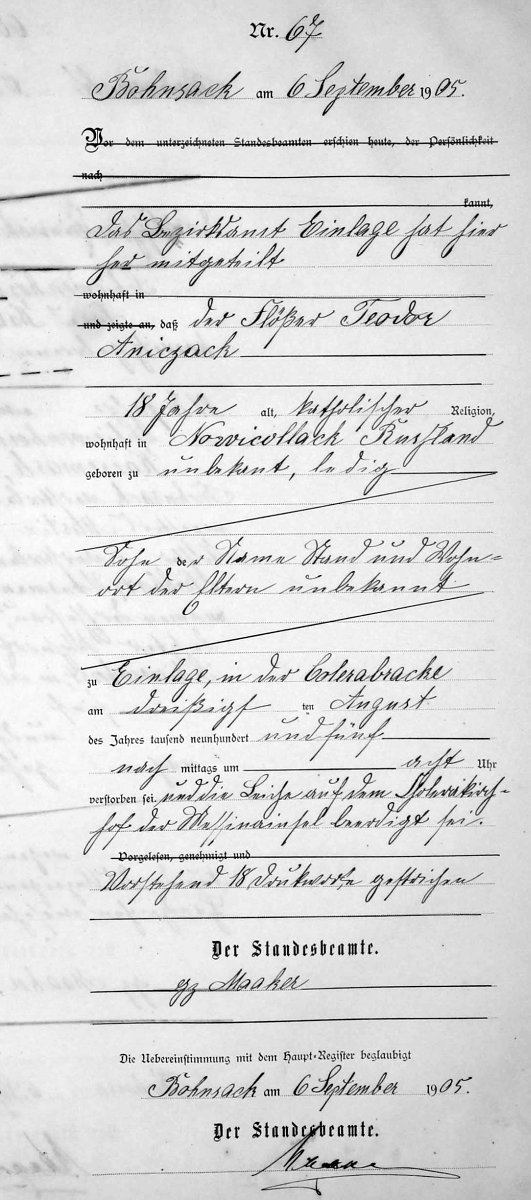 Nr. 67
Bohnsack am 6 September 1905.
Vor dem unterzeichneten Standesbeamten erschien heute, der Persönlichkeit
nach
kannt,
Das Bezirksamt Einlage hat hier
her mitgeteilt
wohnhaft in
und zeigte an, daß der Flößer Teodor
Aniczack
18 Jahre alt, katholischer Religion,
wohnhaft in Nowicollack Rußland
geboren zu unbekant, ledig
Sohn der Name Stand und Wohn=
ort der Eltern unbekannt
zu Einlage, in der Colerabracke
am dreißigs ten August
des Jahres tausend neunhundert und fünf
nach mittags um acht Uhr
verstorben sei und die Leiche auf dem Cholerakirch=
hof der Messinainsel beerdigt sei.
Vorgelesen, genehmigt und
Vorstehend 18 Druckworte gestrichen
Der Standesbeamte.
gz Maaker
Die Uebereinstimmung mit dem Haupt-Register beglaubigt
Bohnsack am 6 September 1905.
Der Standesbeamte.